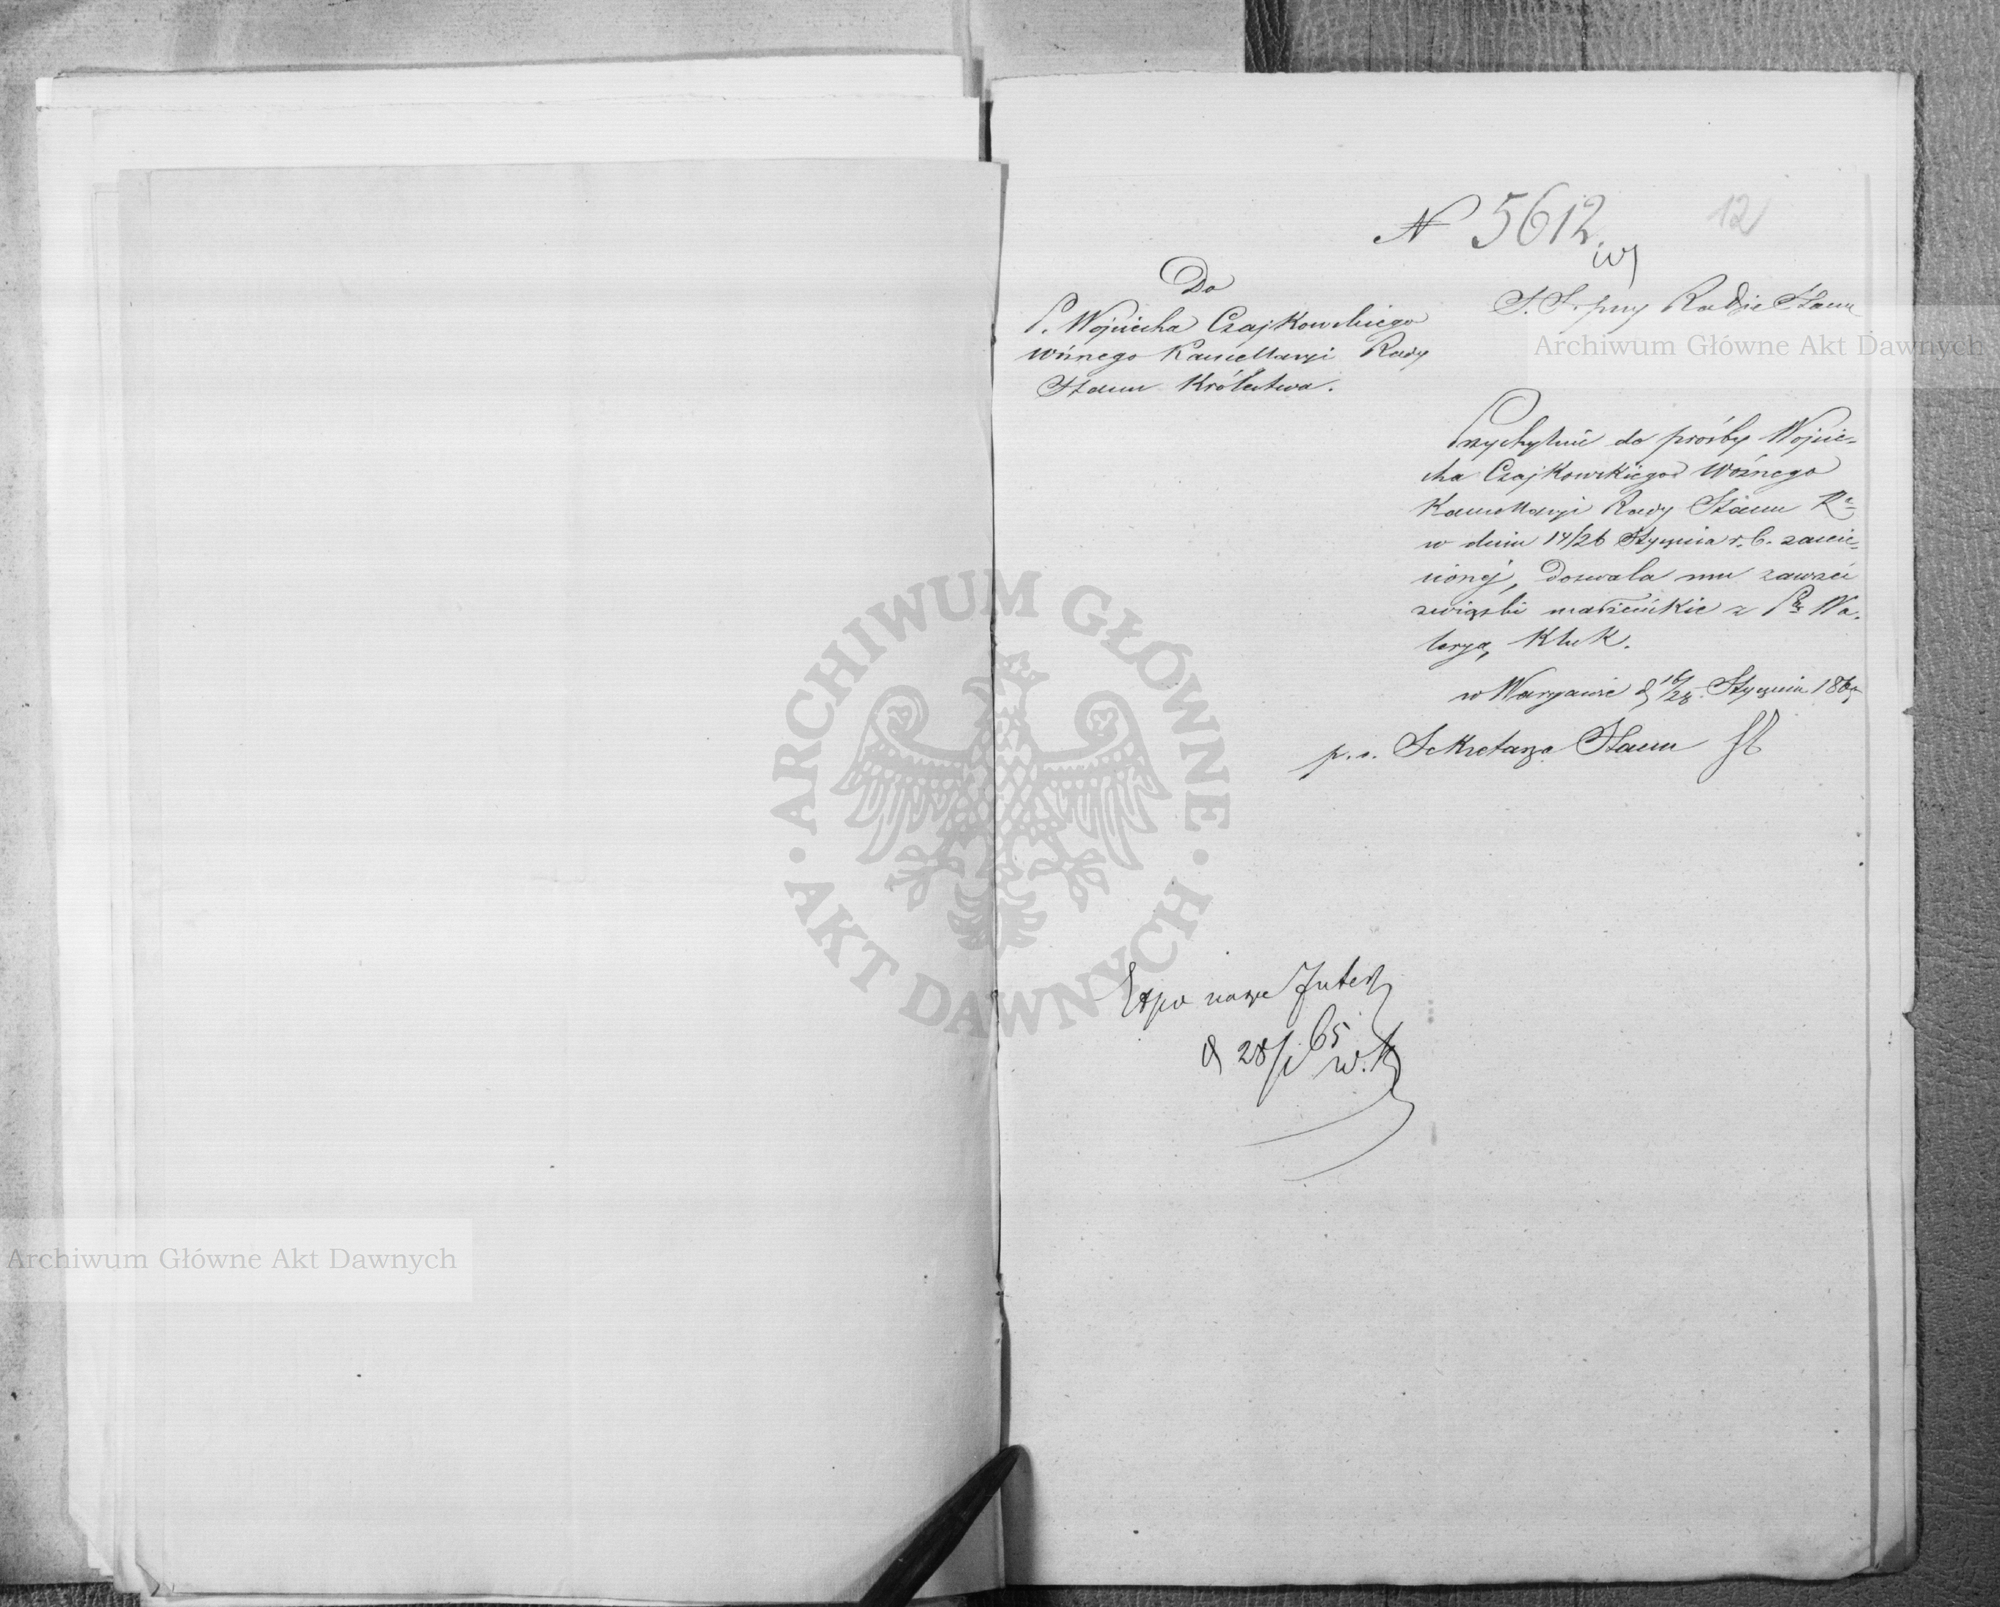 12
N 5612
S. S. przy Radzie Stanu
Do
P. Wojciecha Czajkowskiego
Woźnego Kancellaryi Rady
Stanu Królestwa.
Przychylnie do prośby Wojcie-
cha Czajkowskiego Woźnego
Kancellaryi Rady Stanu
w dniu 14/26 Stycznia r. b. zanie-
sionéj, dozwala mu zawrzéć
związki małżeńskie z Pą Wa-
leryą Kluk.
w Warszawie d 16/28 Stycznia 1865
p. o. Sekretarza Stanu
d 28/1 65
ARCHIWUM GŁÓWNE · AKT DAWNYCH ·
Archiwum Główne Akt Dawnych
Archiwum Główne Akt Dawnych